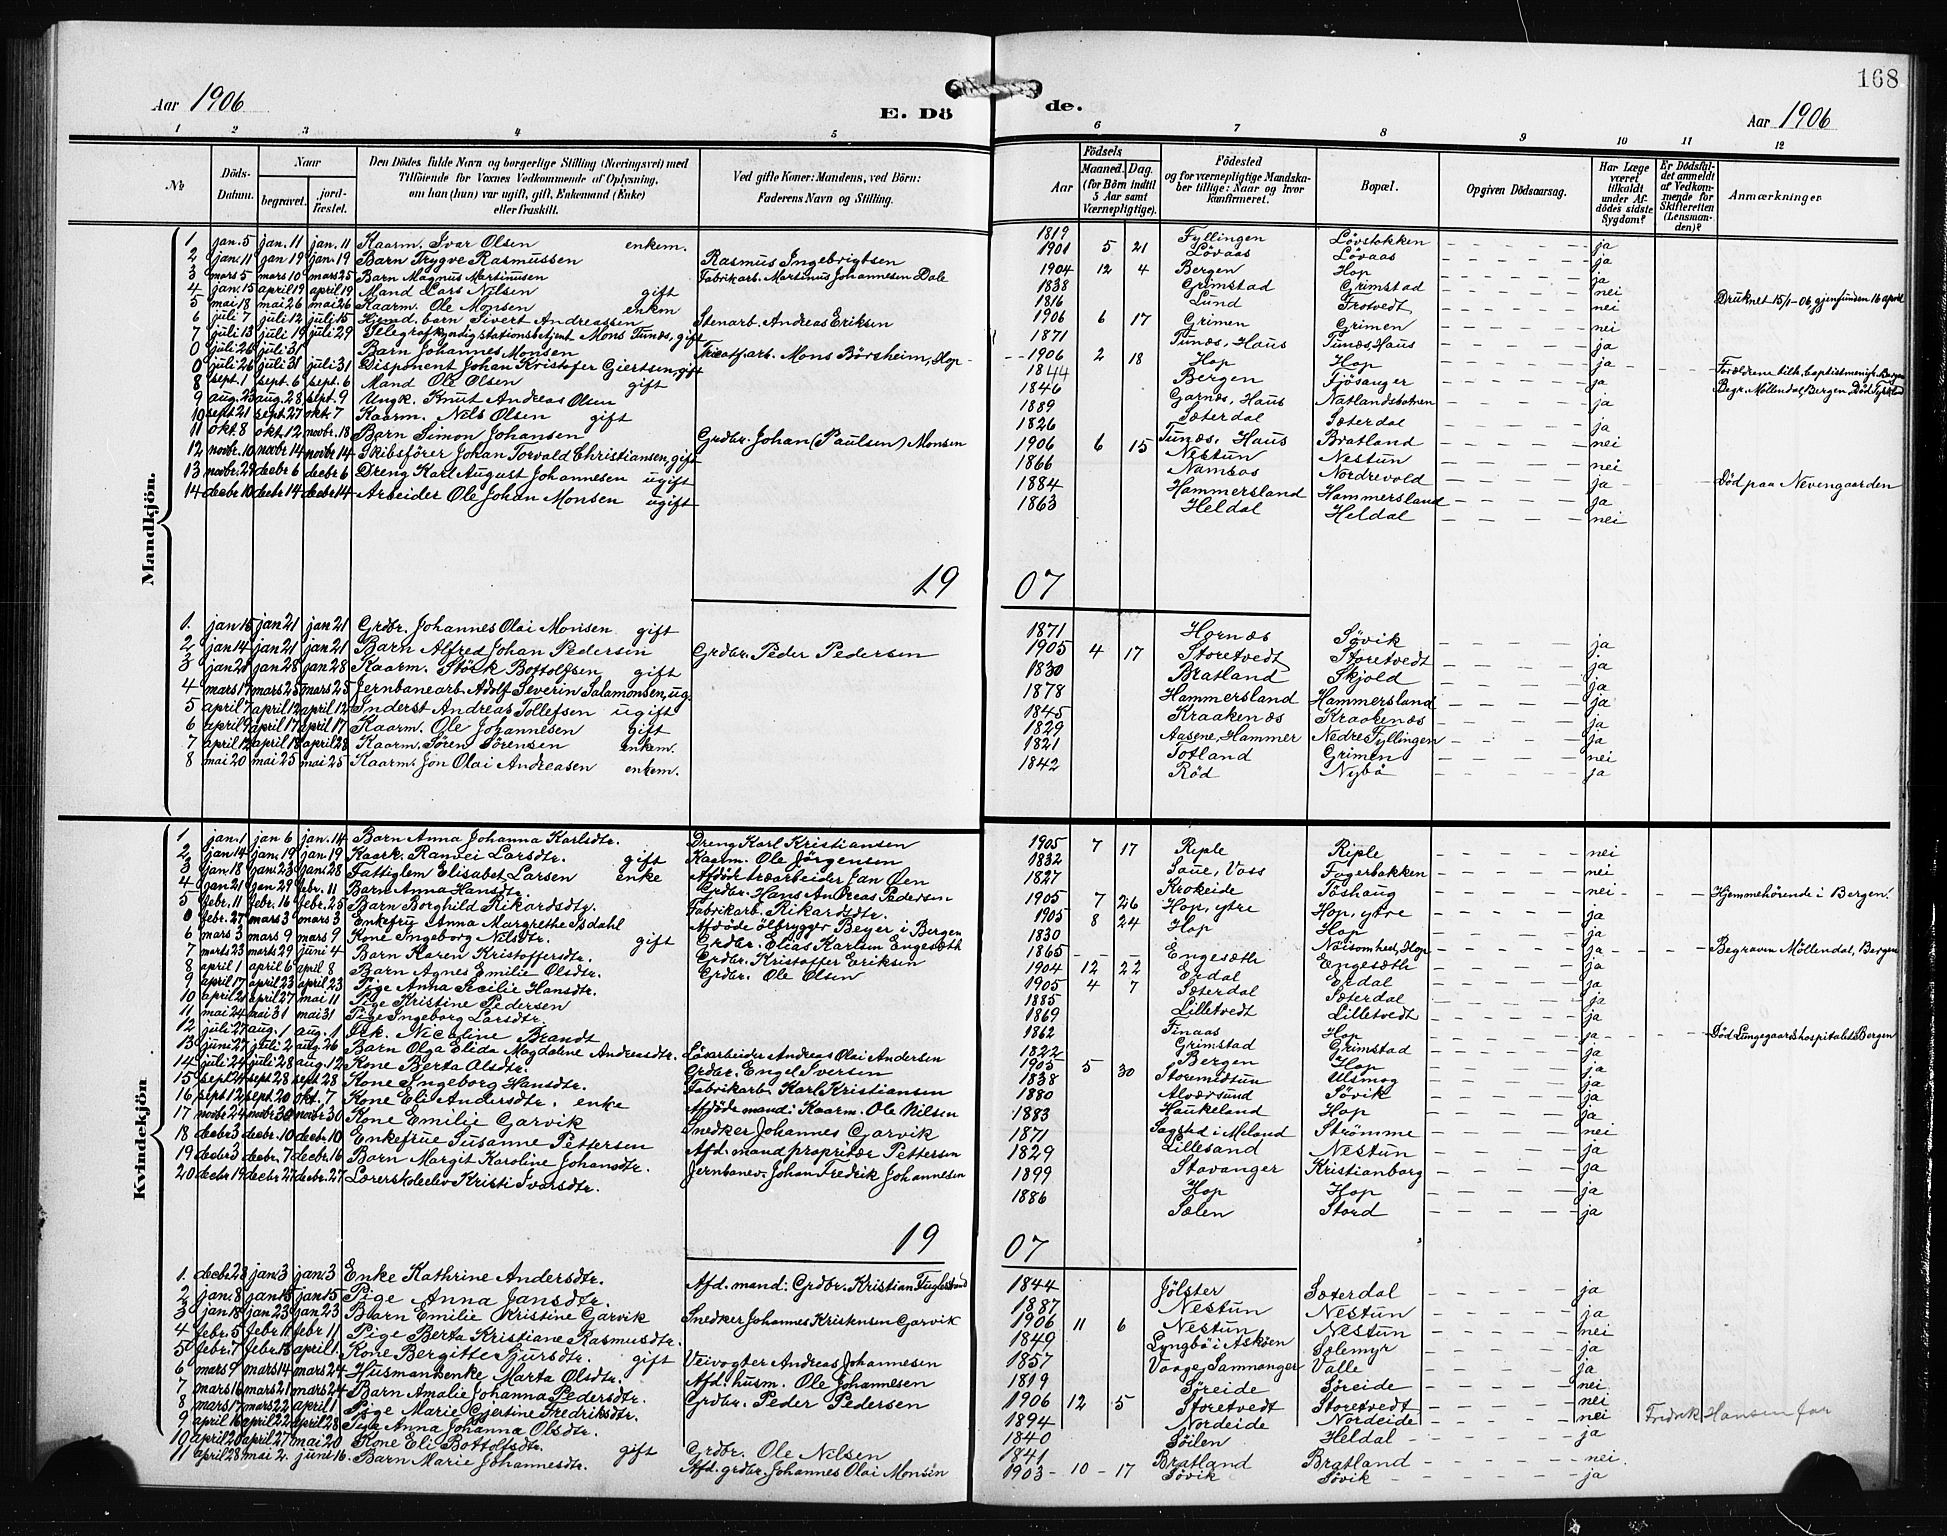 168
Aar 1906
E. Dö de.
Aar 1906
1 2 3 4 5 6 7 8 9 10 11 12
№
Döds-Datum.
Naar
begravet.
jord-fæstet.
Den Dödes fulde Navn og borgerlige Stilling (Næringsvei) med
Tilföiende for Voxnes Vedkommende af Oplysning,
om han (hun) var ugift, gift, Enkemand (Enke)
eller fraskilt.
Ved gifte Koner: Mandens, ved Börn:
Faderens Navn og Stilling.
Födsels
Aar
Maaned. Dag.
(for Börn indtil
5 Aar samt
Værnepligtige).
Födested
og for værnepligtige Mandska-
ber tillige: Naar og hvor
konfirmeret.
Bopæl.
Opgiven Dödsaarsag.
Har Læge
været
tilkaldt
under Af-
dödes sidste
Sygdom?
Er Dödsfal-
det anmeldt
af Vedkom-
mende for
Skifteretten
(Lensman-
den)?
Anmærkninger
Mandkjön.
1 jan. 5 jan. 11 jan. 11 Kaarm. Ivar Olsen enkem. 1819 Fyllingen Lövstakken ja
2 jan. 11 jan. 19 jan. 19 Barn Trygve Rasmussen Rasmus Ingebrigtsen 1901 5 21 Lövaas Lövaas ja
3 mars 5 mars 10 mars 25 Barn Magnus Martinusen Fabrikarb. Martinus Johannesen Dale 1904 12 4 Bergen Hop ja
4 jan. 15 april 19 april 19 Mand Lars Nilsen gift 1838 Grimstad Grimstad nei Druknet 15/1-06, gjenfunden 16 april
5 mai 18 mai 26 mai 26 Kaarm. Ole Monsen enkem 1816 Lund Trotvedt nei
6 juli 7 juli 12 juli 15 Hjmd. barn Sivert Andreassen Stenarb. Andreas Eriksen 1906 6 17 Grimen Grimen nei
7 juli 13 juli 19 juli 29 Telegrafkyndig stationsbetjent Mons Tunæs, gift 1871 Tunæs, Haus Tunæs, Haus ja
0 juli 26 juli 31 Barn Johannes Monsen Tricotf.arb. Mons Börsheim, Hop 1906 2 18 Hop Hop ja Forældrene tilh. baptistmenigh. Bergen
0 juli 26 juli 31 juli 31 Disponent Johan Kristofer Giertsen, gift 1844 Bergen Fjösanger ja Begr. Möllendal, Bergen. Död Tyskland
8 sept. 1 sept. 6 sept. 6 Mand Ole Olsen gift 1846 Garnæs, Haus Natlandsbotnen ja
9 aug. 23 aug. 28 sept. 9 Ungk. Knut Andreas Olsen 1889 Sæterdal Sæterdal ja
10 sept 21 sept. 27 okt. 7 Kaarm. Nils Olsen gift 1826 Tunæs, Haus Bratland nei
11 okt. 8 okt. 12 novbr. 18 Barn Simon Johansen Grdbr. Johan (Paulsen) Monsen 1906 6 15 Nestun Nestun nei
12 novbr. 10 novbr 14 novbr 14 Skibsförer Johan Torvald Christiansen, gift 1866 Namsos Nordrevold ja Död paa Nevengaarden
13 novbr. 29 decbr 6 decbr 6 Dreng Karl August Johannesen ugift 1884 Hammersland Hammersland ja
14 decbr 10 decbr 14 decbr 14 Arbeider Ole Johan Monsen ugift 1863 Heldal Heldal nei
19 07
1. jan 16 jan 21 jan 21 Grdbr. Johannes Olai Monsen gift 1871 Hornæs Sövik ja
2 jan 14 jan 21 jan 21 Barn Alfred Johan Pedersen Grdbr. Peder Pedersen 1905 4 17 Storetvedt Storetvedt ja
3 jan 21 jan 28 jan 28 Kaarm. Störk Bottolfsen gift 1830 Bratland Skjold ja
4 mars 17 mars 25 mars 25 Jernbanearb. Adolf Severin Salamonsen, ug. 1878 Hammersland Hammersland ja
5 april 7 april 12 april 12 Inderst Andreas Tollefsen ugift 1845 Kraakenæs Kraakenæs ja
6 april 9 april 17 april 17 Kaarm. Ole Johannesen gift 1829 Aasene, Hammer Nedre Fyllingen ja
7 april 12 april 18 april 28 Kaarm. Sören Sörensen enkem. 1821 Totland Grimen nei
8 mai 20 mai 25 mai 25 Kaarm. Jon Olai Andreasen enkem. 1842 Röd Nybö ja
Kvindekjön
1. jan. 1 jan 6 jan. 14 Barn Anna Johanna Karlsdtr. Dreng Karl Kristiansen 1905 7 17 Riple Riple nei
2. jan 14 jan. 19 jan 19 Kaark. Ranvei Larsdtr. gift Kaarm. Ole Jörgensen 1832 Saue, Voss Fagerbakken nei
3 jan 18 jan. 23 jan 28 Fattiglem Elisabet Larsen enke Afdöde træarbeider Jan Öen 1827 Krokeide Töshaug nei Hjemmehörende i Bergen.
4 jan 21 jan 29 febr. 11 Barn Anna Hansdtr. Grdbr. Hans Andreas Pedersen 1905 7 26 Hop, ytre Hop, ytre ja
5 febr. 11 febr. 16 febr. 25 Barn Borghild Rikardsdtr. Fabrikarb. Rikardsdtr. 1905 8 24 Hop Hop ja
0 febr. 27 mars 3 mars 3 Enkefru Anna Margrethe Isdahl Afdöde ölbrygger Beyer i Bergen 1830 Nöisomhed, Hop ja Begraven Möllendal, Bergen
6 mars 3 mars 9 mars 9 Kone Ingeborg Nilsdtr. gift Grdbr. Elias Karlsen Engesæth 1865 Engesæth Engesæth ja
7 marts 23 mars 29 juni 4 Barn Karen Kristoffersdtr. Grdbr. Kristoffer Eriksen 1904 12 22 Erdal Erdal ja
8 april 1 april 6 april 8 Barn Agnes Emilie Olsdtr. Grdbr. Ole Olsen 1905 4 7 Sæterdal Sæterdal ja
9 april 17 april 23 april 23 Pige Anna Secilie Hansdtr. 1885 Lilletvedt Lilletvedt ja
10 april 21 april 27 mai 11 Pige Kristine Pedersen 1869 Finaas Hop ja Död Lungegaardshospitalet Bergen
11 mai 24 mai 31 mai 31 Pige Ingeborg Larsdtr. 1862 Grimstad Grimstad ja
12 juli 27 aug. 1 aug. 1 Frk. Nicoline Brandt 1822 Bergen Hop ja
13 juni 27 juli 2 aug. 26 Barn Olga Elida Magdaline Andreasdtr. Lösarbeider Andreas Olai Andersen 1905 5 30 Storemidtun Ulsmog ja
14 juli 24 juli 28 aug. 12 Kone Berta Olsdtr. Grdbr. Engel Iversen 1838 Alværsund Sövik ja
15 sept 24 sept 28 sept. 28 Kone Ingeborg Hansdtr. Fabrikarb. Karl Kristiansen 1880 Haukeland Hop ja
16 sept 12 sept. 20 okt. 7 Kone Eli Andersdtr. enke Afdöde mand: Kaarm. Ole Nilsen 1883 Sagstad i Meland Strömme nei
17 novbr 24 novbr 30 novbr 30 Kone Emilie Garvik Snedker Johannes Garvik 1871 Lillesand Nestun ja
18 decbr 3 decbr. 10 decbr. 10 Enkefrue Susanne Pettersen Afd. mand propritær Pettersen 1829 Stavanger Kristianborg ja
19 decbr 3 decbr. 7 decbr. 16 Barn Margit Karoline Johansdtr. Jernbanev. Johan Fredrik Johannesen 1899 Hop Hop ja
20 decbr 19 decbr 27 decbr. 27 Lærerskolelev Kristi Ivarsdtr. 1886 Sælen Stord ja
19 07
1. decbr 28 jan 3 jan. 3 Enke Kathrine Andersdtr. Afd. mand: Grdbr. Kristian Fuglestrand 1844 Jölster Sæterdal ja
2 jan. 8 jan 15 jan 15 Pige Anna Jansdtr. 1887 Nestun Nestun ja
3 jan 18 jan 23 jan 23 Barn Emilie Kristine Garvik Snedker Johannes Kristensen Garvik 1906 11 6 Nestun Nestun nei
4 febr. 5 febr 11 febr 11 Pige Berta Kristiane Rasmusdtr. 1849 Lyngbö i Asköen Sælemyr ja
5 febr. 7 febr. 18 april 1. Kone Bergitte Sjursdtr. gift Veivogter Andreas Johannesen 1857 Vaage, Samnanger Valle ja
6 mars 9 mars 14 mars 24 Husmandsenke Marta Olsdtr. Afd. husm. Ole Johannesen 1819 Söreide Söreide nei
7 mars 16 mars 21 mars 24 Barn Amalie Johanna Pedersdtr. Grdbr. Peder Pedersen 1906 12 5 Storetvedt Storetvedt nei
8 mars 17 mars 22 april 1 Pige Marie Gjertine Fredriksdtr. 1894 Nordeide Nordeide nei Fredrik Hansen far
9 april 16 april 22 april 28 Pige Anna Johanna Olsdtr. 1840 Söilen Heldal ja
10 april 20 april 27 mai 20 Kone Eli Bottolfsdtr. gift Grdbr. Ole Nilsen 1841 Bratland Bratland nei
11 april 28 mai 2 juni 16 Barn Marie Johannesdtr. Afd. grdbr. Johannes Olai Monsen 1903 10 17 Sövik Sövik ja